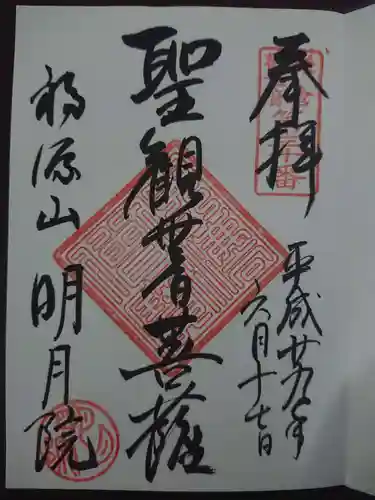 奉拝
平成廿九年
六月十七日
聖観世音菩薩
福源山 明月院